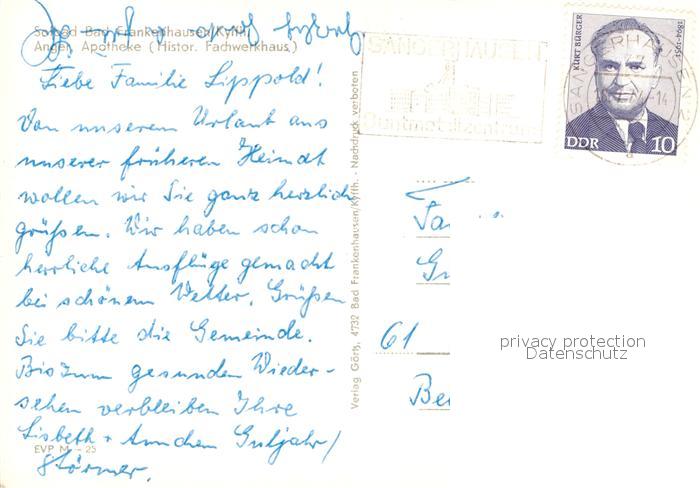 Solbad Bad Frankenhausen/Kyffh.
Anger, Apotheke (Histor. Fachwerkhaus)
Liebe Familie Lippold!
Von unserem Urlaub aus
unserer früheren Heimat
wollen wir Sie ganz herzlich
grüßen. Wir haben schon
herrliche Ausflüge gemacht
bei schönem Wetter. Grüßen
Sie bitte die Gemeinde.
Bis zum gesunden Wieder-
sehen verbleiben Ihre
Lisbeth + Ännchen Gutjahr/
Störmer.
EVP M - 25
Verlag Görtz, 4732 Bad Frankenhausen/Kyffh. - Nachdruck verboten
SANGERHAUSEN
Buntmetallzentrum
SANGERHAUSEN 2
14
a
KURT BÜRGER
1894-1951
DDR 10
Fa
G
61
Be
privacy protection
Datenschutz